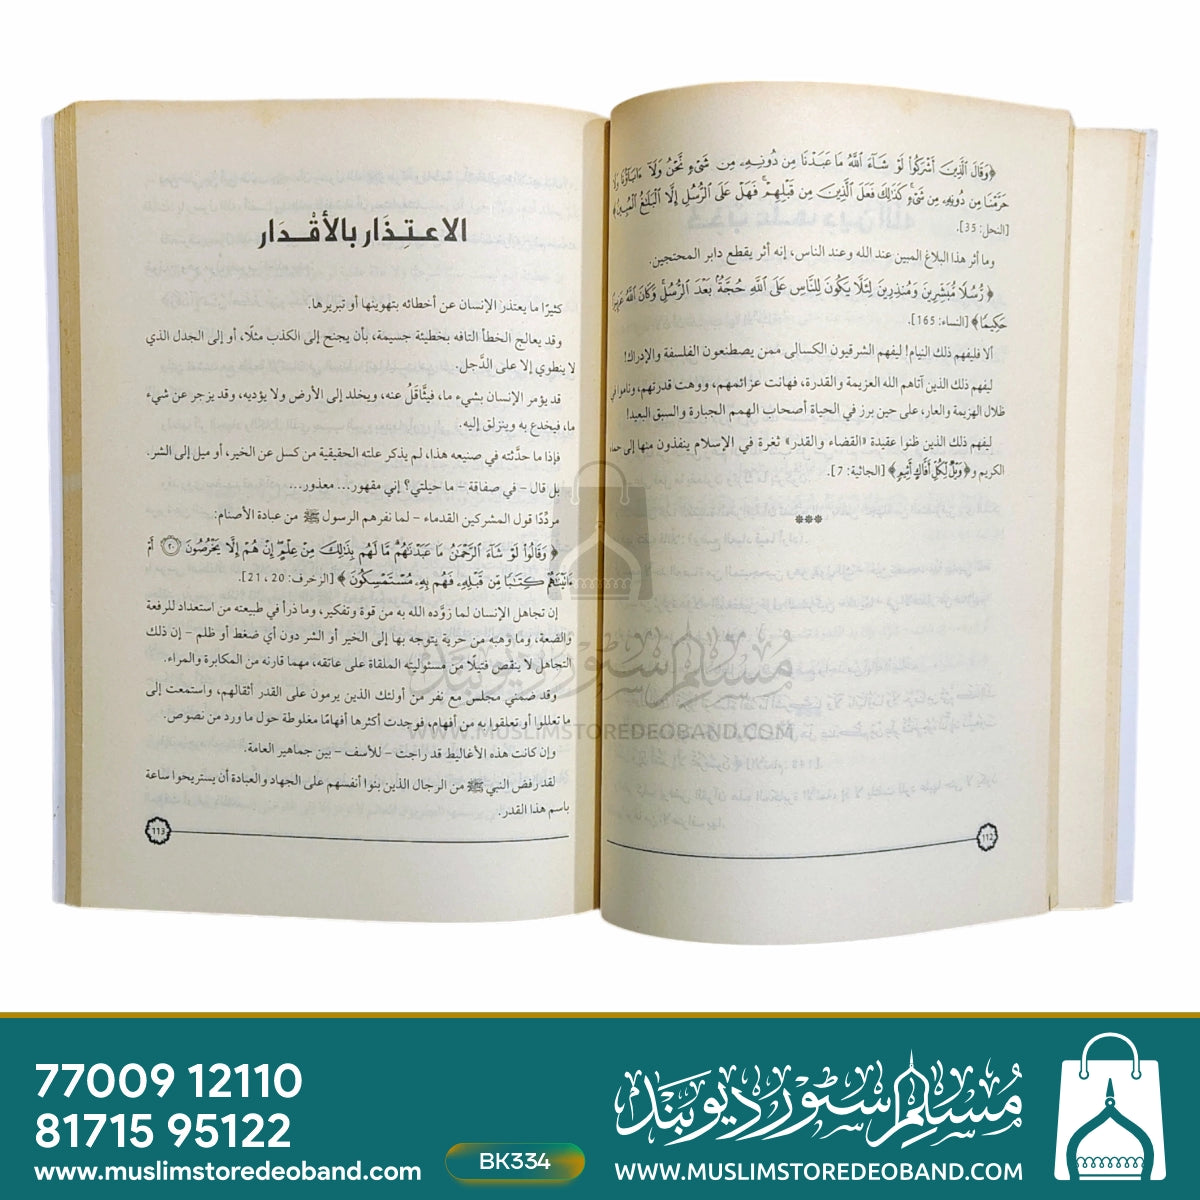 ﴿وَقَالَ ٱلَّذِينَ أَشْرَكُوا۟ لَوْ شَآءَ ٱللَّهُ مَا عَبَدْنَا مِن دُونِهِۦ مِن شَىْءٍ نَّحْنُ وَلَآ ءَابَآؤُنَا وَلَا
حَرَّمْنَا مِن دُونِهِۦ مِن شَىْءٍ كَذَٰلِكَ فَعَلَ ٱلَّذِينَ مِن قَبْلِهِمْ فَهَلْ عَلَى ٱلرُّسُلِ إِلَّا ٱلْبَلَٰغُ ٱلْمُبِينُ﴾
[النحل: 35].
وما أثر هذا البلاغ المبين عند الله وعند الناس، إنه أثر يقطع دابر المحتجين.
﴿رُّسُلًا مُّبَشِّرِينَ وَمُنذِرِينَ لِئَلَّا يَكُونَ لِلنَّاسِ عَلَى ٱللَّهِ حُجَّةٌۢ بَعْدَ ٱلرُّسُلِ وَكَانَ ٱللَّهُ عَزِيزًا
حَكِيمًا﴾ [النساء: 165].
ألا فليفهم ذلك النيام! ليفهم الشرقيون الكسالى ممن يصطنعون الفلسفة والإدراك!
ليفهم ذلك الذين آتاهم الله العزيمة والقدرة، فهانت عزائمهم، ووهت قدرتهم، وناموا في
ظلال الهزيمة والعار، على حين برز في الحياة أصحاب الهمم الجبارة والسبق البعيد!
ليفهم ذلك الذين ظنوا عقيدة «القضاء والقدر» ثغرة في الإسلام ينفذون منها إلى حماه
الكريم و﴿وَيْلٌ لِّكُلِّ أَفَّاكٍ أَثِيمٍ﴾ [الجاثية: 7].
***
112
الاعتِذَار بالأقْدَار
كثيرًا ما يعتذر الإنسان عن أخطائه بتهوينها أو تبريرها.
وقد يعالج الخطأ التافه بخطيئة جسيمة، بأن يجنح إلى الكذب مثلًا، أو إلى الجدل الذي
لا ينطوي إلا على الدَّجل.
قد يؤمر الإنسان بشيء ما، فيثَّاقَلُ عنه، ويخلد إلى الأرض ولا يؤديه، وقد يزجر عن شيء
ما، فيخدع به وينزلق إليه.
فإذا ما حدَّثته في صنيعه هذا، لم يذكر علته الحقيقية من كسل عن الخير، أو ميل إلى الشر.
بل قال – في صفاقة – ما حيلتي؟ إني مقهور... معذور...
مردِّدًا قول المشركين القدماء – لما نفرهم الرسول ﷺ من عبادة الأصنام:
﴿وَقَالُوا۟ لَوْ شَآءَ ٱلرَّحْمَٰنُ مَا عَبَدْنَٰهُم مَّا لَهُم بِذَٰلِكَ مِنْ عِلْمٍ إِنْ هُمْ إِلَّا يَخْرُصُونَ ۝٢٠ أَمْ
ءَاتَيْنَٰهُمْ كِتَٰبًا مِّن قَبْلِهِۦ فَهُم بِهِۦ مُسْتَمْسِكُونَ﴾ [الزخرف: 20، 21].
إن تجاهل الإنسان لما زوَّده الله به من قوة وتفكير، وما ذرأ في طبيعته من استعداد للرفعة
والضعة، وما وهبه من حرية يتوجه بها إلى الخير أو الشر دون أي ضغط أو ظلم – إن ذلك
التجاهل لا ينقص فتيلًا من مسئوليته الملقاة على عاتقه، مهما قارنه من المكابرة والمراء.
وقد ضمني مجلس مع نفر من أولئك الذين يرمون على القدر أثقالهم، واستمعت إلى
ما تعللوا أو تعلقوا به من أفهام، فوجدت أكثرها أفهامًا مغلوطة حول ما ورد من نصوص.
وإن كانت هذه الأغاليط قد راجت – للأسف – بين جماهير العامة.
لقد رفض النبي ﷺ من الرجال الذين بنوا أنفسهم على الجهاد والعبادة أن يستريحوا ساعة
باسم هذا القدر.
113
مسلم سٹور دیوبند
WWW.MUSLIMSTOREDEOBAND.COM
77009 12110
81715 95122
www.muslimstoredeoband.com
BK334
مسلم سٹور دیوبند
WWW.MUSLIMSTOREDEOBAND.COM